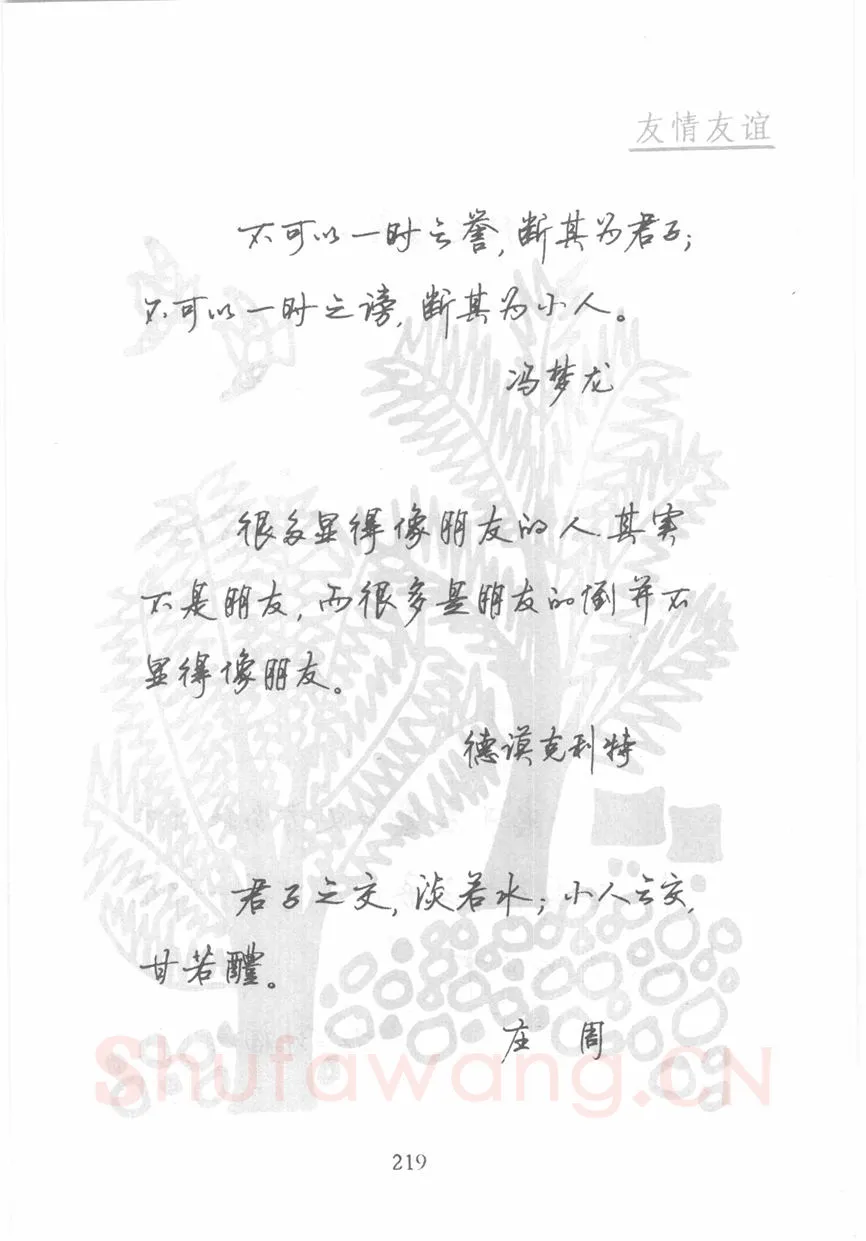 友情友谊
不可以一时之誉,断其为君子;
不可以一时之谤,断其为小人。
冯梦龙
很多显得像朋友的人其实
不是朋友,而很多是朋友的倒并不
显得像朋友。
德谟克利特
君子之交,淡若水;小人之交,
甘若醴。
庄 周
Shufawang.CN
219